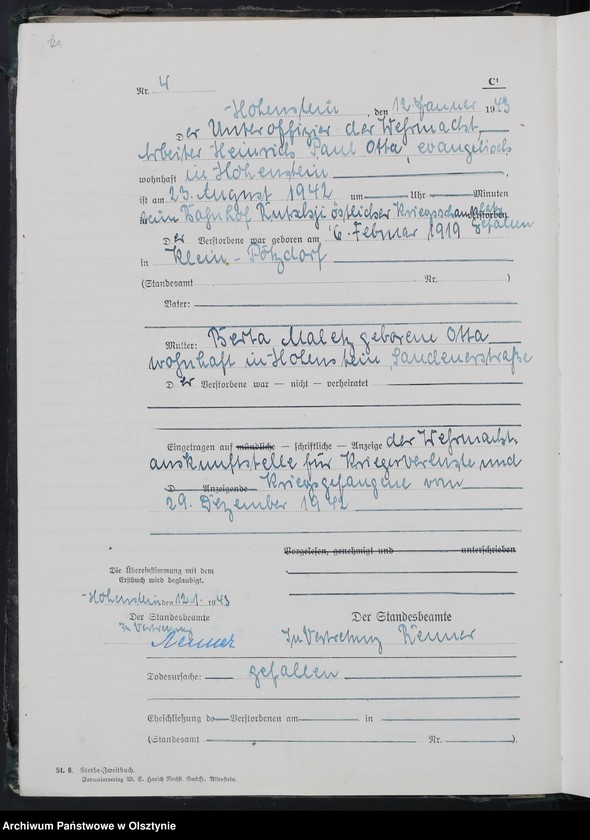 Nr. 4
C¹
Hohenstein, den 12 Januar 1943
Der Unteroffizier der Wehrmacht,
Arbeiter Heinrich Paul Otta, evangelisch
wohnhaft in Hohenstein
ist am 23. August 1942 um Uhr Minuten
beim Bahnhof östlicher Kriegsschauplatz verstorben
gefallen
Der Verstorbene war geboren am 6. Februar 1919
in Klein-Pötzdorf
(Standesamt Nr. )
Vater:
Mutter: Berta Maletz geborene Otta
wohnhaft in Hohenstein,
Der Verstorbene war — nicht — verheiratet
Eingetragen auf mündliche — schriftliche — Anzeige der Wehrmacht-
auskunftstelle für Kriegerverluste und
D Anzeigende Kriegsgefangene vom
29. Dezember 1942
Vorgelesen, genehmigt und unterschrieben
Die Übereinstimmung mit dem
Erstbuch wird beglaubigt.
Hohenstein den 12.1. 1943
Der Standesbeamte
In Vertretung
Der Standesbeamte
In Vertretung
Todesursache: gefallen
Eheschließung de Verstorbenen am in
(Standesamt Nr. ).
St. 6. Sterbe-Zweitbuch.
Formularverlag W. E. Harich Nachf. GmbH., Allenstein.
Archiwum Państwowe w Olsztynie